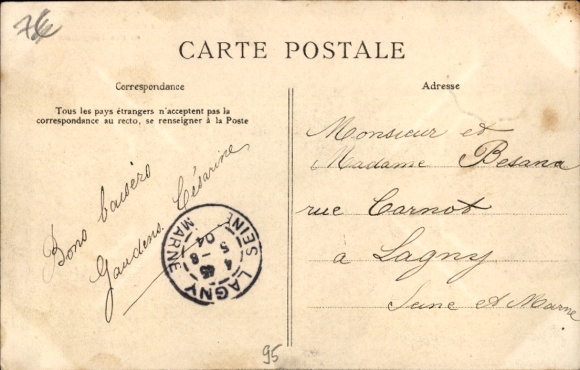 76
CARTE POSTALE
Correspondance
Tous les pays étrangers n'acceptent pas la
correspondance au recto, se renseigner à la Poste
Bons baisers
Gaudens Césarine
LAGNY
SEINE
MARNE
Adresse
Monsieur et
Madame Besana
rue Carnot
à Lagny
Seine et Marne
95